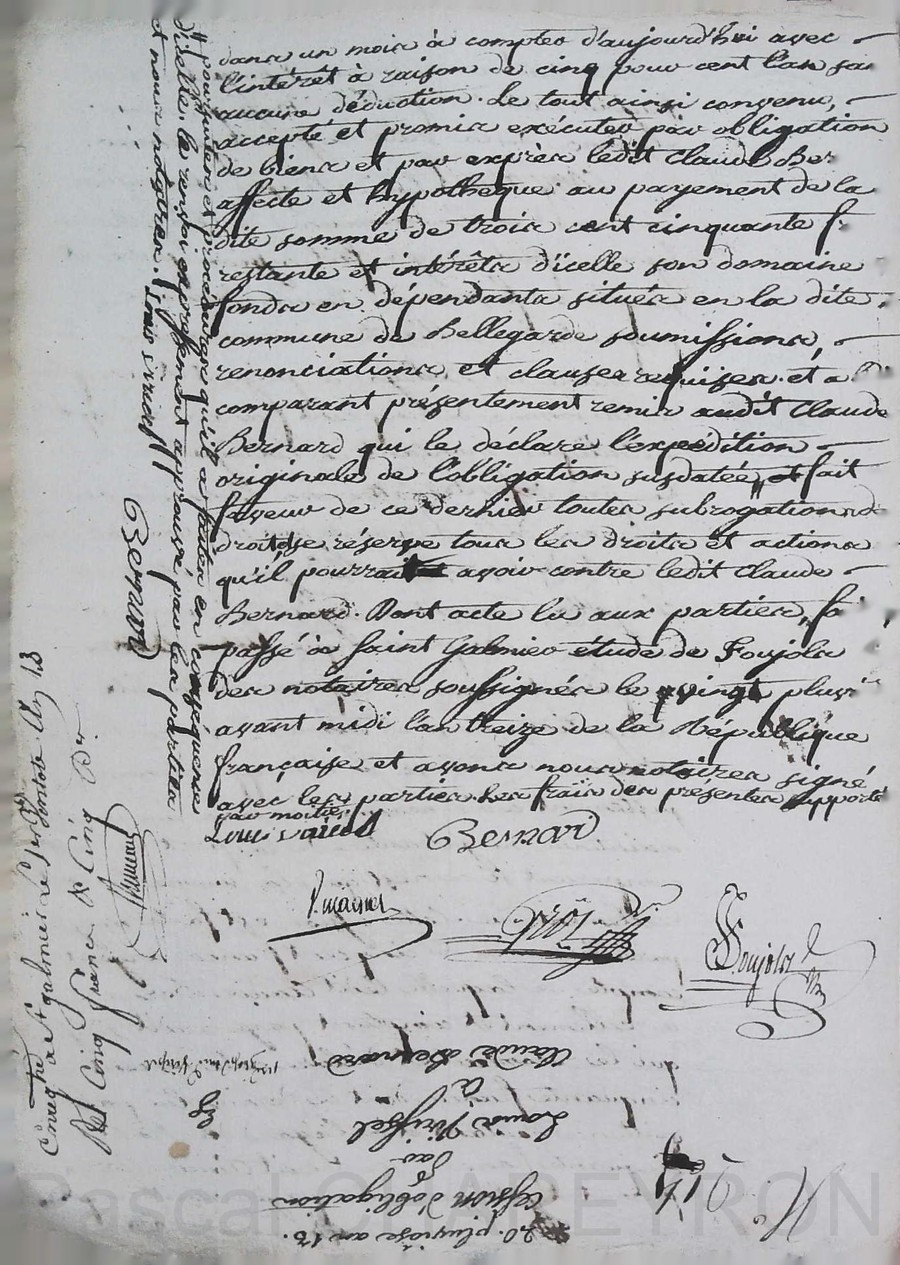 dans un mois à compter d'aujourd'hui avec
l'intérêt à raison de cinq pour cent l'an san
aucune déduction. Le tout ainsi convenu,
accepté et promis exécuter par obligation
de biens et par exprès ledit Claude Ber
affecte et hypothèque au payement de la
dite somme de trois cent cinquante f.
restante et intérêts d'icelle son domaine
fonds en dépendants situés en la dite
commune de Bellegarde soumissions,
renonciations et clauses requises. et a
comparant présentement remis audit Claude
Bernard qui le déclare l'expédition
originale de l'obligation susdatée, et fait
faveur de ce dernier toutes subrogations de
droits se réserve tous les droits et actions
qu'il pourrait avoir contre ledit Claude
Bernard. Dont acte lu aux parties, fai
passé à Saint Galmier étude de Foujols
des notaires soussignés le vingt pluvi
avant midi l'an treize de la République
française et avons nous notaires signé
avec les parties. Les frais des présentes supporté
par moitié
Bernard
Foujols
poursuites et procédures qu'il a faites en conséquence
d'icelle. le renvoi expressément approuvé par les parties
et nous notaires.
Bernard
Enreg.tré à St galmier le an 13
Rs Cinq francs &c Cinq
20. pluviose an 13.
Cession d'obligation
par
Louis
à
Claude Bernard
Pascal CHAPEYRON